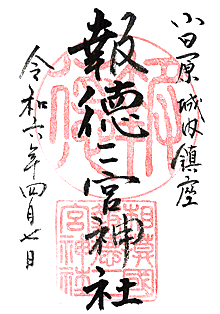 小田原城内鎮座
報徳二宮神社
令和六年四月七日
相模國
宮神社